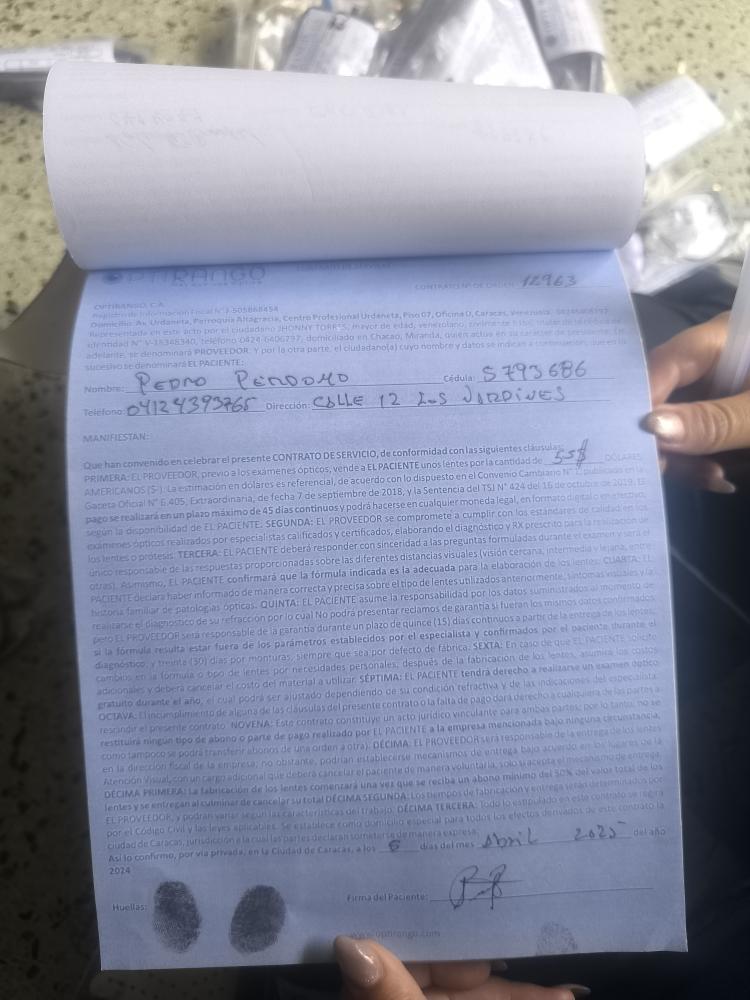 OPTIRANGO
CONTRATO DE SERVICIO
CONTRATO Nº DE ORDEN: 12963
OPTIRANGO, C.A.
Registro de Información Fiscal N° J-505868454
Domicilio: Av. Urdaneta, Parroquia Altagracia, Centro Profesional Urdaneta, Piso 07, Oficina D, Caracas, Venezuela.
Representada en este acto por el ciudadano JHONNY TORRES, mayor de edad, venezolano, civilmente hábil, titular de la cédula de
identidad N° V-18348340, teléfono 0424-6406797, domiciliado en Chacao, Miranda, quien actúa en su carácter de
adelante, se denominará PROVEEDOR. Y por la otra parte, el ciudadano(a) cuyo nombre y datos se indican a continuación, que en lo
sucesivo se denominará EL PACIENTE:
Nombre: PEDRO PERDOMO Cédula: 5793686
Teléfono: 04124393765 Dirección: CALLE 12 LOS JARDINES
MANIFIESTAN:
Que han convenido en celebrar el presente CONTRATO DE SERVICIO, de conformidad con las siguientes cláusulas:
PRIMERA: EL PROVEEDOR, previo a los exámenes ópticos, vende a EL PACIENTE unos lentes por la cantidad de 55$ DÓLARES
AMERICANOS (S-). La estimación en dólares es referencial, de acuerdo con lo dispuesto en el Convenio Cambiario N° 1, publicado en la
Gaceta Oficial N° 6.405, Extraordinaria, de fecha 7 de septiembre de 2018, y la Sentencia del TSJ N° 424 del 16 de octubre de 2019. El
pago se realizará en un plazo máximo de 45 días continuos y podrá hacerse en cualquier moneda legal, en formato digital o en efectivo,
según la disponibilidad de EL PACIENTE. SEGUNDA: EL PROVEEDOR se compromete a cumplir con los estándares de calidad en los
exámenes ópticos realizados por especialistas calificados y certificados, elaborando el diagnóstico y RX prescrito para la realización de
los lentes o prótesis. TERCERA: EL PACIENTE deberá responder con sinceridad a las preguntas formuladas durante el examen y será el
único responsable de las respuestas proporcionadas sobre las diferentes distancias visuales (visión cercana, intermedia y lejana, entre
otras). Asimismo, EL PACIENTE confirmará que la fórmula indicada es la adecuada para la elaboración de los lentes. CUARTA: EL
PACIENTE declara haber informado de manera correcta y precisa sobre el tipo de lentes utilizados anteriormente, síntomas visuales y la
historia familiar de patologías ópticas. QUINTA: EL PACIENTE asume la responsabilidad por los datos suministrados al momento de
realizarse el diagnóstico de su refracción por lo cual No podrá presentar reclamos de garantía si fueran los mismos datos confirmados
pero EL PROVEEDOR será responsable de la garantía durante un plazo de quince (15) días continuos a partir de la entrega de los lentes,
si la fórmula resulta estar fuera de los parámetros establecidos por el especialista y confirmados por el paciente durante el
diagnóstico, y treinta (30) días por monturas, siempre que sea por defecto de fábrica. SEXTA: En caso de que EL PACIENTE solicite
cambios en la fórmula o tipo de lentes por necesidades personales, después de la fabricación de los lentes, asumirá los costos
adicionales y deberá cancelar el costo del material a utilizar. SÉPTIMA: EL PACIENTE tendrá derecho a realizarse un examen óptico
gratuito durante el año, el cual podrá ser ajustado dependiendo de su condición refractiva y de las indicaciones del especialista.
OCTAVA: El incumplimiento de alguna de las cláusulas del presente contrato o la falta de pago dará derecho a cualquiera de las partes a
rescindir el presente contrato. NOVENA: Este contrato constituye un acto jurídico vinculante para ambas partes; por lo tanto, no se
restituirá ningún tipo de abono o parte de pago realizado por EL PACIENTE a la empresa mencionada bajo ninguna circunstancia,
como tampoco se podrá transferir abonos de una orden a otra). DÉCIMA: EL PROVEEDOR será responsable de la entrega de los lentes
en la dirección fiscal de la empresa; no obstante, podrían establecerse mecanismos de entrega bajo acuerdo en los lugares de la
Atención Visual, con un cargo adicional que deberá cancelar el paciente de manera voluntaria, solo si acepta el mecanismo de entrega.
DÉCIMA PRIMERA: La fabricación de los lentes comenzará una vez que se reciba un abono mínimo del 50% del valor total de los
lentes y se entregan al culminar de cancelar su total DÉCIMA SEGUNDA: Los tiempos de fabricación y entrega serán determinados por
EL PROVEEDOR, y podrán variar según las características del trabajo. DÉCIMA TERCERA: Todo lo estipulado en este contrato se regirá
por el Código Civil y las leyes aplicables. Se establece como domicilio especial para todos los efectos derivados de este contrato la
ciudad de Caracas, jurisdicción a la cual las partes declaran someterse de manera expresa.
Así lo confirmo, por vía privada, en la Ciudad de Caracas, a los 6 días del mes Abril 2025 del año
2024
Huellas:
Firma del Paciente:
www.optirango.com